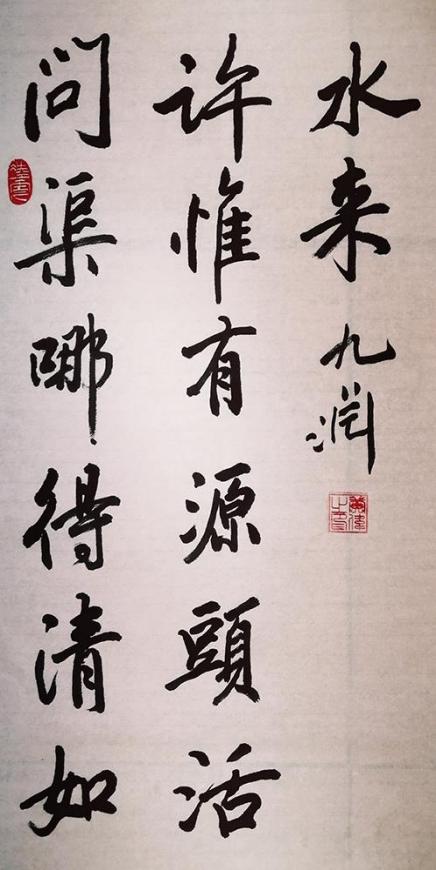 问渠哪得清如
许惟有源頭活
水来
九润